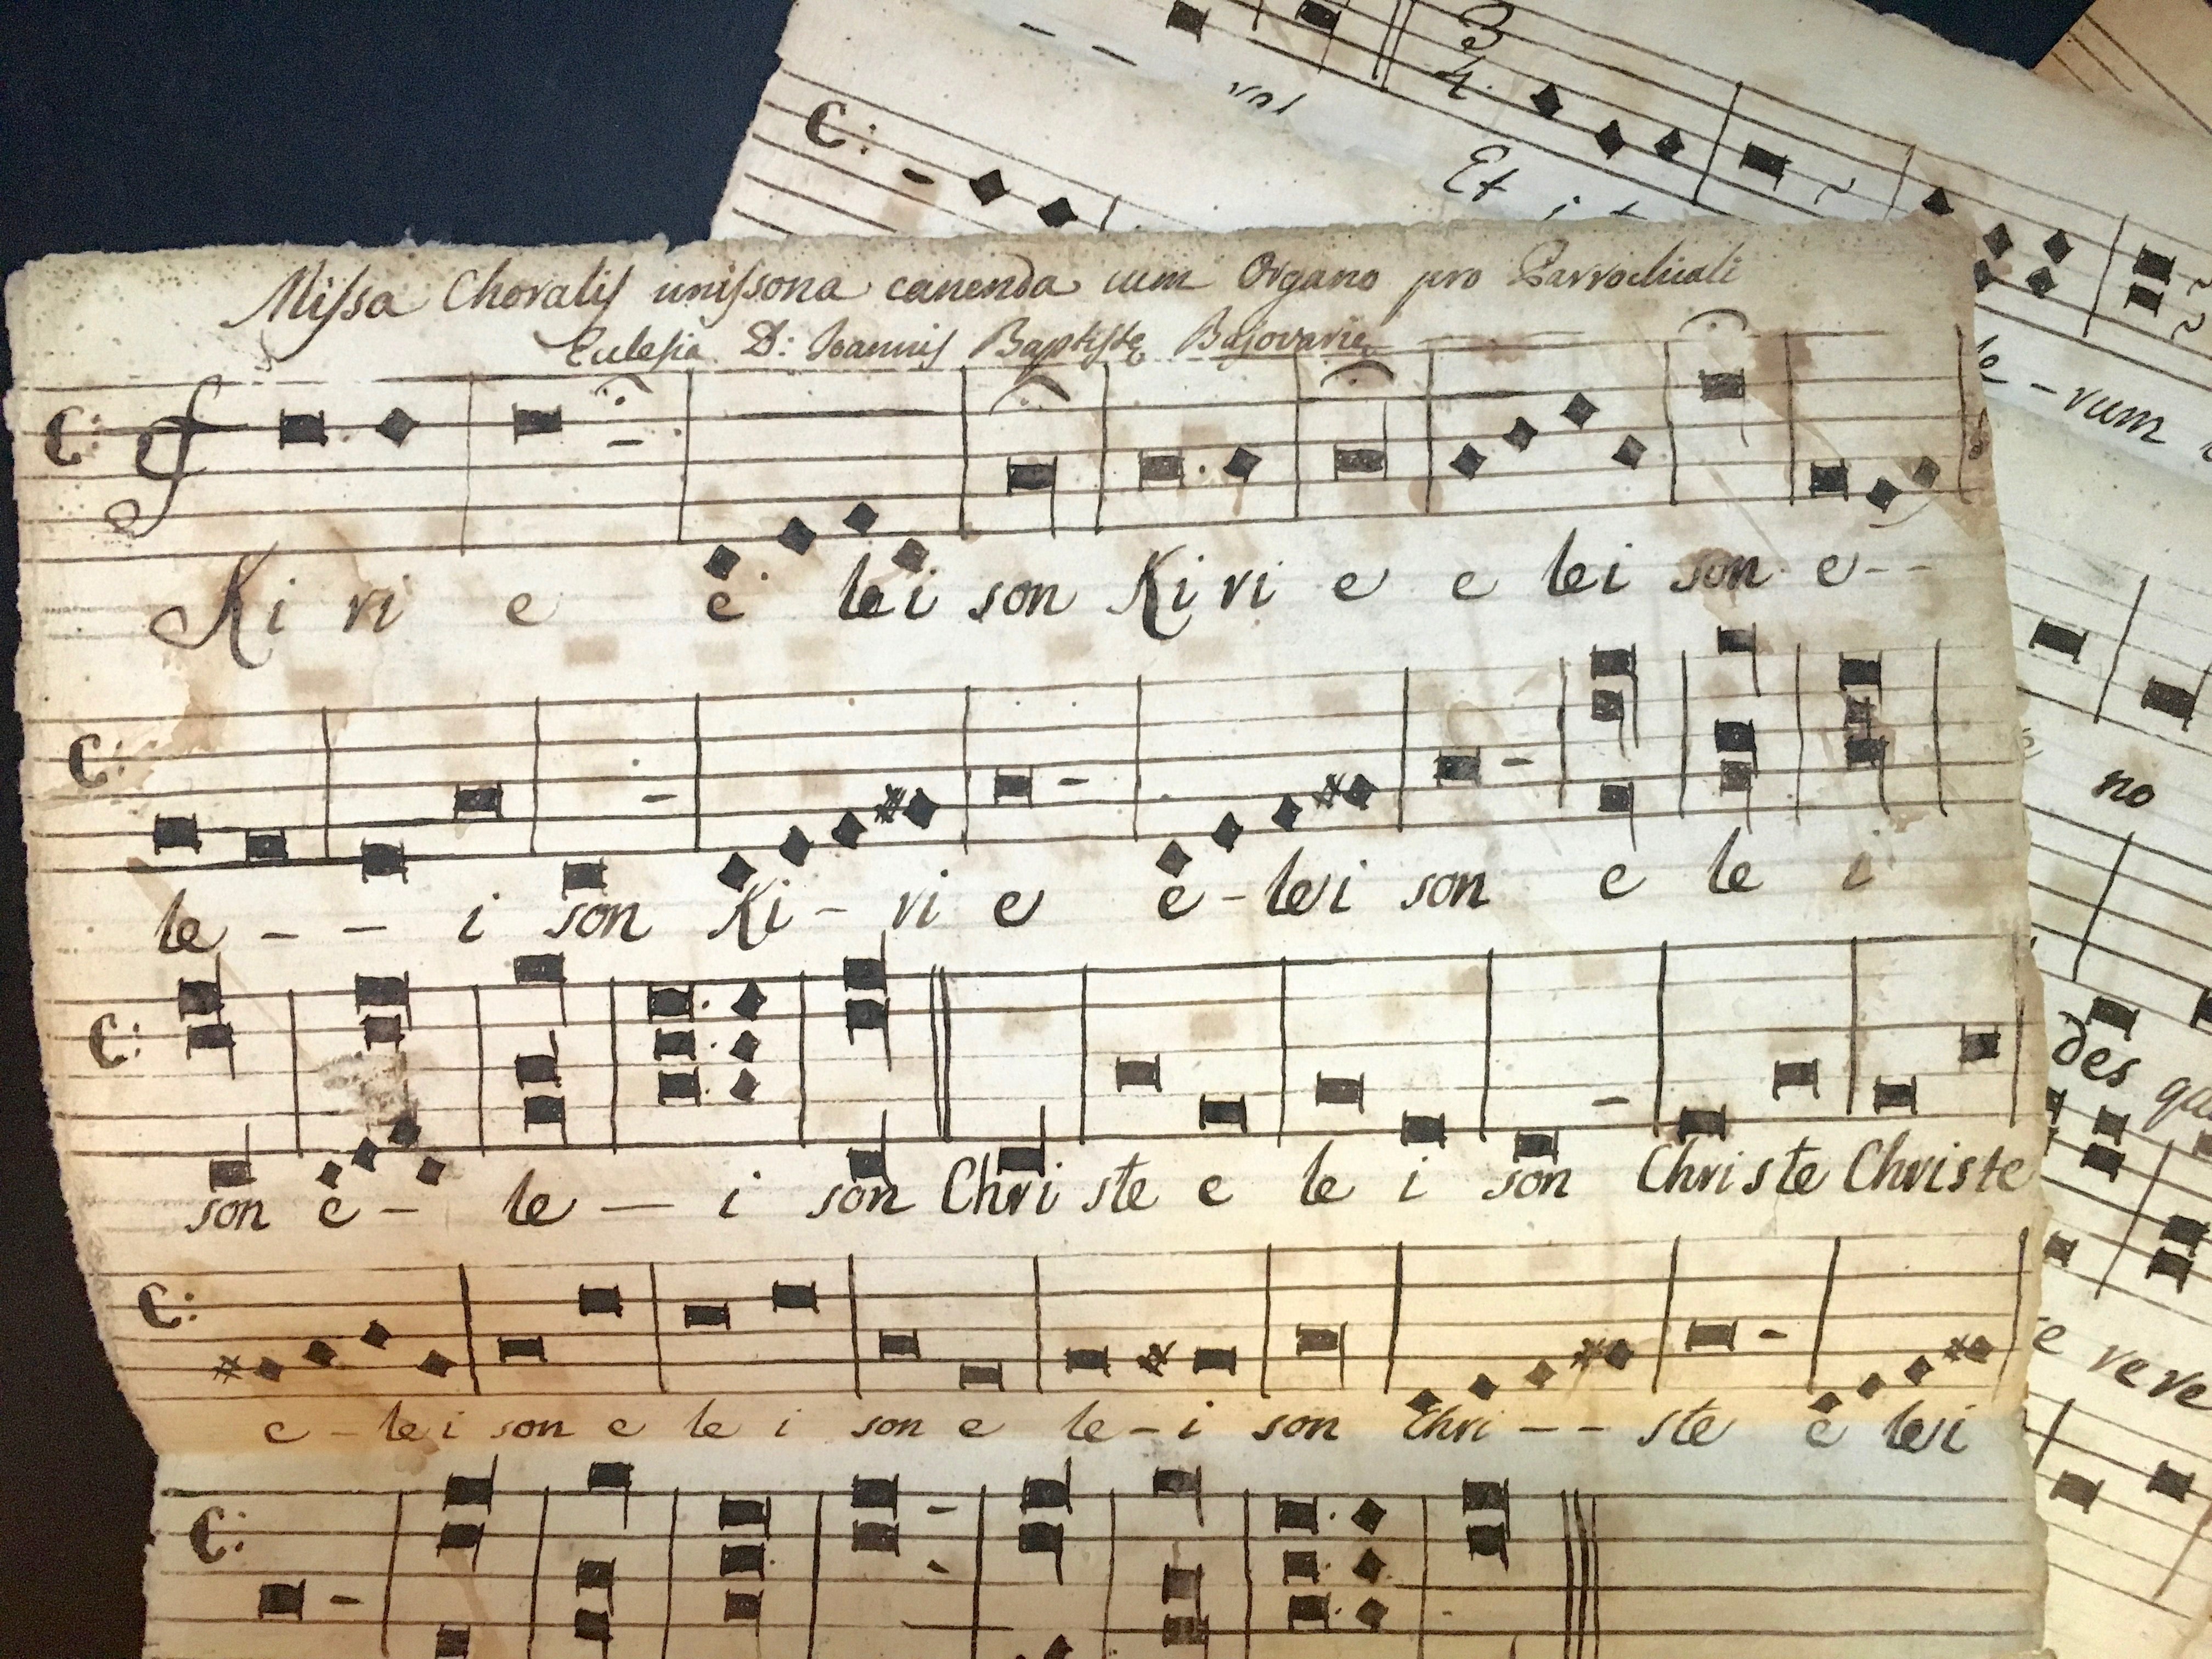 Miſsa Choraliſ uniſsona canenda cum Organo pro Parrochiali
Eccleſia D: Ioanniſ Baptiſtę
C: f
Ki ri e e lei son Ki ri e e lei son e - -
C:
le - - i son Ki - ri e e - lei son e le i
C:
son e - le - i son Chri ste e le i son Christe Christe
C:
e - lei son e le i son e le - i son Chri - - ste e lei
C:
C:
3
4.
Et
rum
no
des